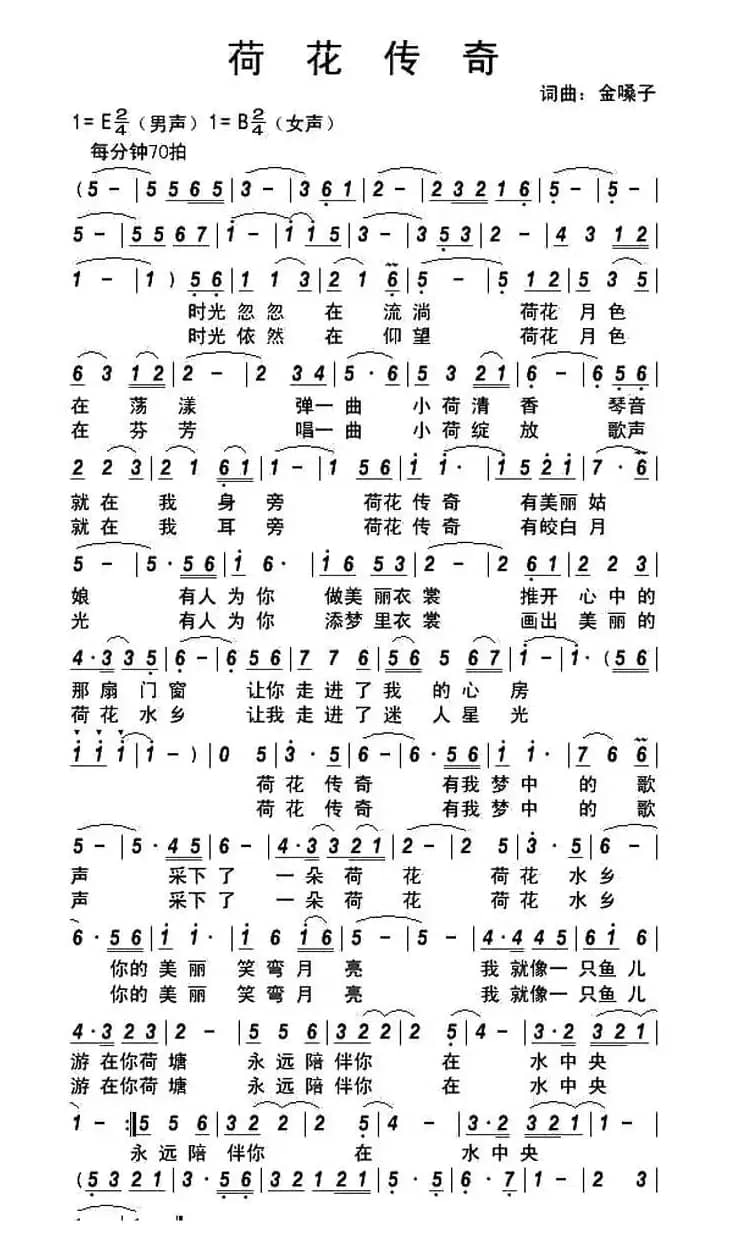 荷花传奇
词曲：金嗓子
1=E2/4（男声）1=B2/4（女声）
每分钟70拍
(5 - | 5 5 6 5 | 3 - | 3 6 1 | 2 - | 2 3 2 1 6 | 5 - | 5 - |
5 - | 5 5 6 7 | 1 - | 1 1 5 | 3 - | 3 5 3 | 2 - | 4 3 1 2 |
1 - | 1 ) 5 6 | 1 1 3 | 2 1 6 | 5 - | 5 1 2 | 5 3 5 |
时光 忽忽 在 流淌 荷花 月色
时光 依然 在 仰望 荷花 月色
6 3 1 2 | 2 - | 2 3 4 | 5 · 6 | 5 3 2 1 | 6 - | 6 5 6 |
在 荡 漾 弹一 曲 小 荷 清 香 琴音
在 芬 芳 唱一 曲 小 荷 绽 放 歌声
2 2 3 | 2 1 6 1 | 1 - | 1 5 6 | 1 1 · | 1 5 2 1 | 7 · 6 |
就 在 我 身 旁 荷花 传 奇 有美丽 姑
就 在 我 耳 旁 荷花 传 奇 有皎白 月
5 - | 5 · 5 6 | 1 6 · | 1 6 5 3 | 2 - | 2 6 1 | 2 2 3 |
娘 有人 为 你 做美 丽衣 裳 推开 心 中 的
光 有人 为 你 添梦 里衣 裳 画出 美 丽 的
4 · 3 3 5 | 6 - | 6 5 6 | 7 7 6 | 5 6 5 6 7 | 1 - | 1 · ( 5 6 |
那 扇 门 窗 让你 走 进 了 我 的 心 房
荷 花 水 乡 让我 走 进 了 迷 人 星 光
1 1 1 | 1 - ) | 0 5 | 3 · 5 | 6 - | 6 · 5 6 | 1 1 · | 7 6 6 |
荷 花 传 奇 有我 梦 中 的 歌
荷 花 传 奇 有我 梦 中 的 歌
5 - | 5 · 4 5 | 6 - | 4 · 3 3 2 1 | 2 - | 2 5 | 3 · 5 |
声 采下 了 一 朵 荷 花 荷 花 水 乡
声 采下 了 一 朵 荷 花 荷 花 水 乡
6 · 5 6 | 1 1 · | 1 6 1 6 | 5 - | 5 - | 4 · 4 4 5 | 6 1 6 |
你的 美 丽 笑 弯 月 亮 我 就像一 只鱼 儿
你的 美 丽 笑 弯 月 亮 我 就像一 只鱼 儿
4 · 3 2 3 | 2 - | 5 5 6 | 3 2 2 2 | 2 5 | 4 - | 3 · 2 3 2 1 |
游 在你荷 塘 永 远 陪 伴你 在 水 中 央
游 在你荷 塘 永 远 陪 伴你 在 水 中 央
1 - :‖ 5 5 6 | 3 2 2 2 | 2 5 | 4 - | 3 · 2 3 2 1 | 1 - |
永 远 陪 伴你 在 水 中 央
( 5 3 2 1 | 3 · 5 6 | 3 2 1 2 | 2 · 5 | 5 6 · 7 | 1 - | 2 3 |